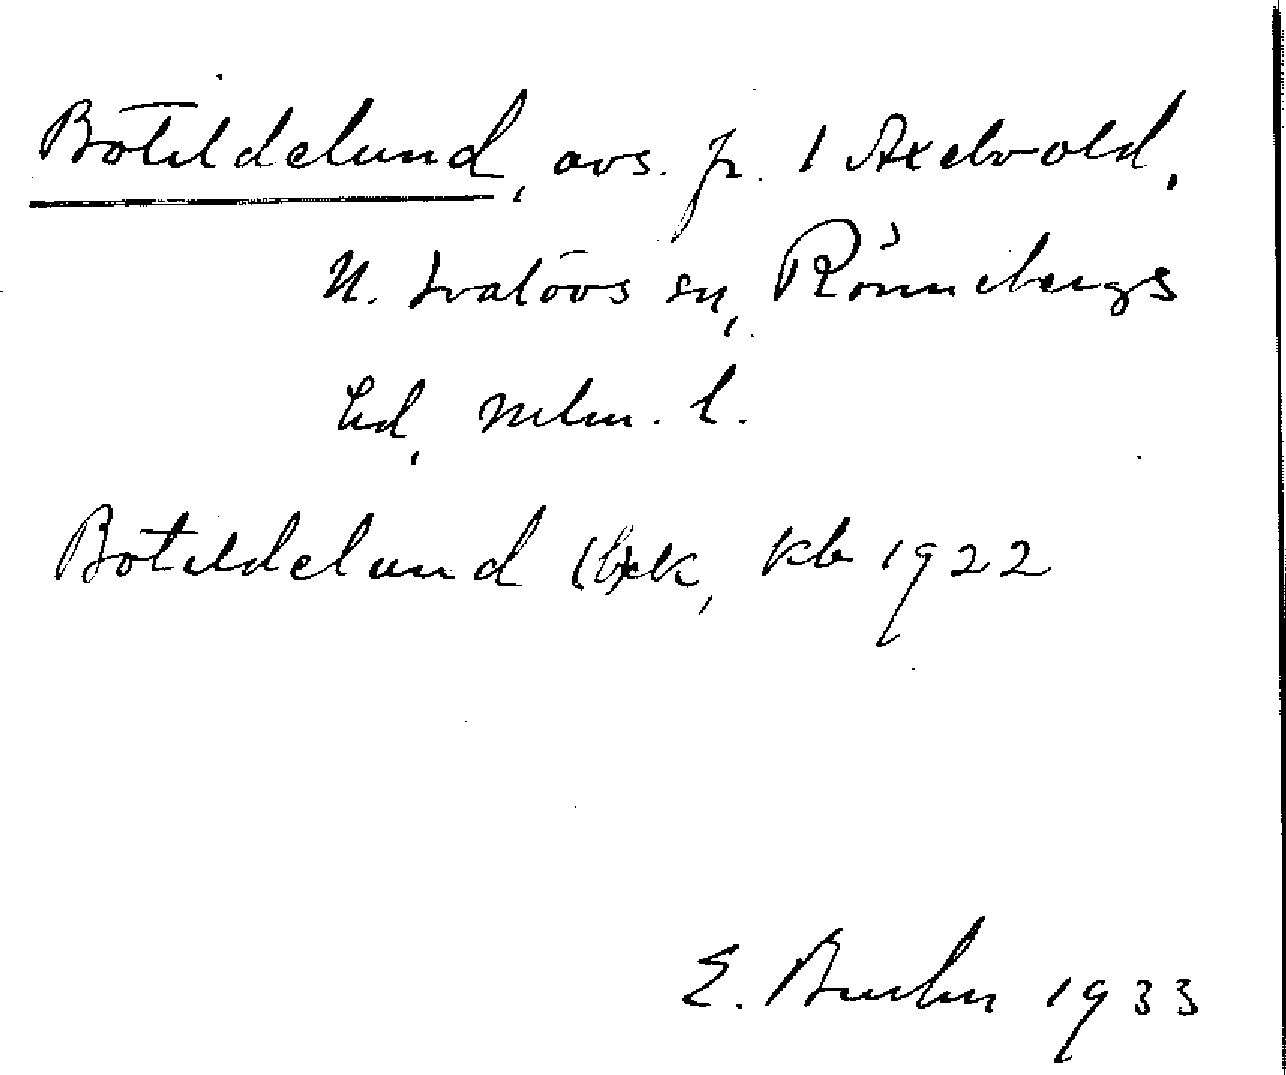 Botildelund, avs. fr. 1 Axelvold,
N. Svalövs sn, Rönnebergs
hd, Mlm. l.
Botildelund Ebrek, kb 1922
E. Buhn 1933